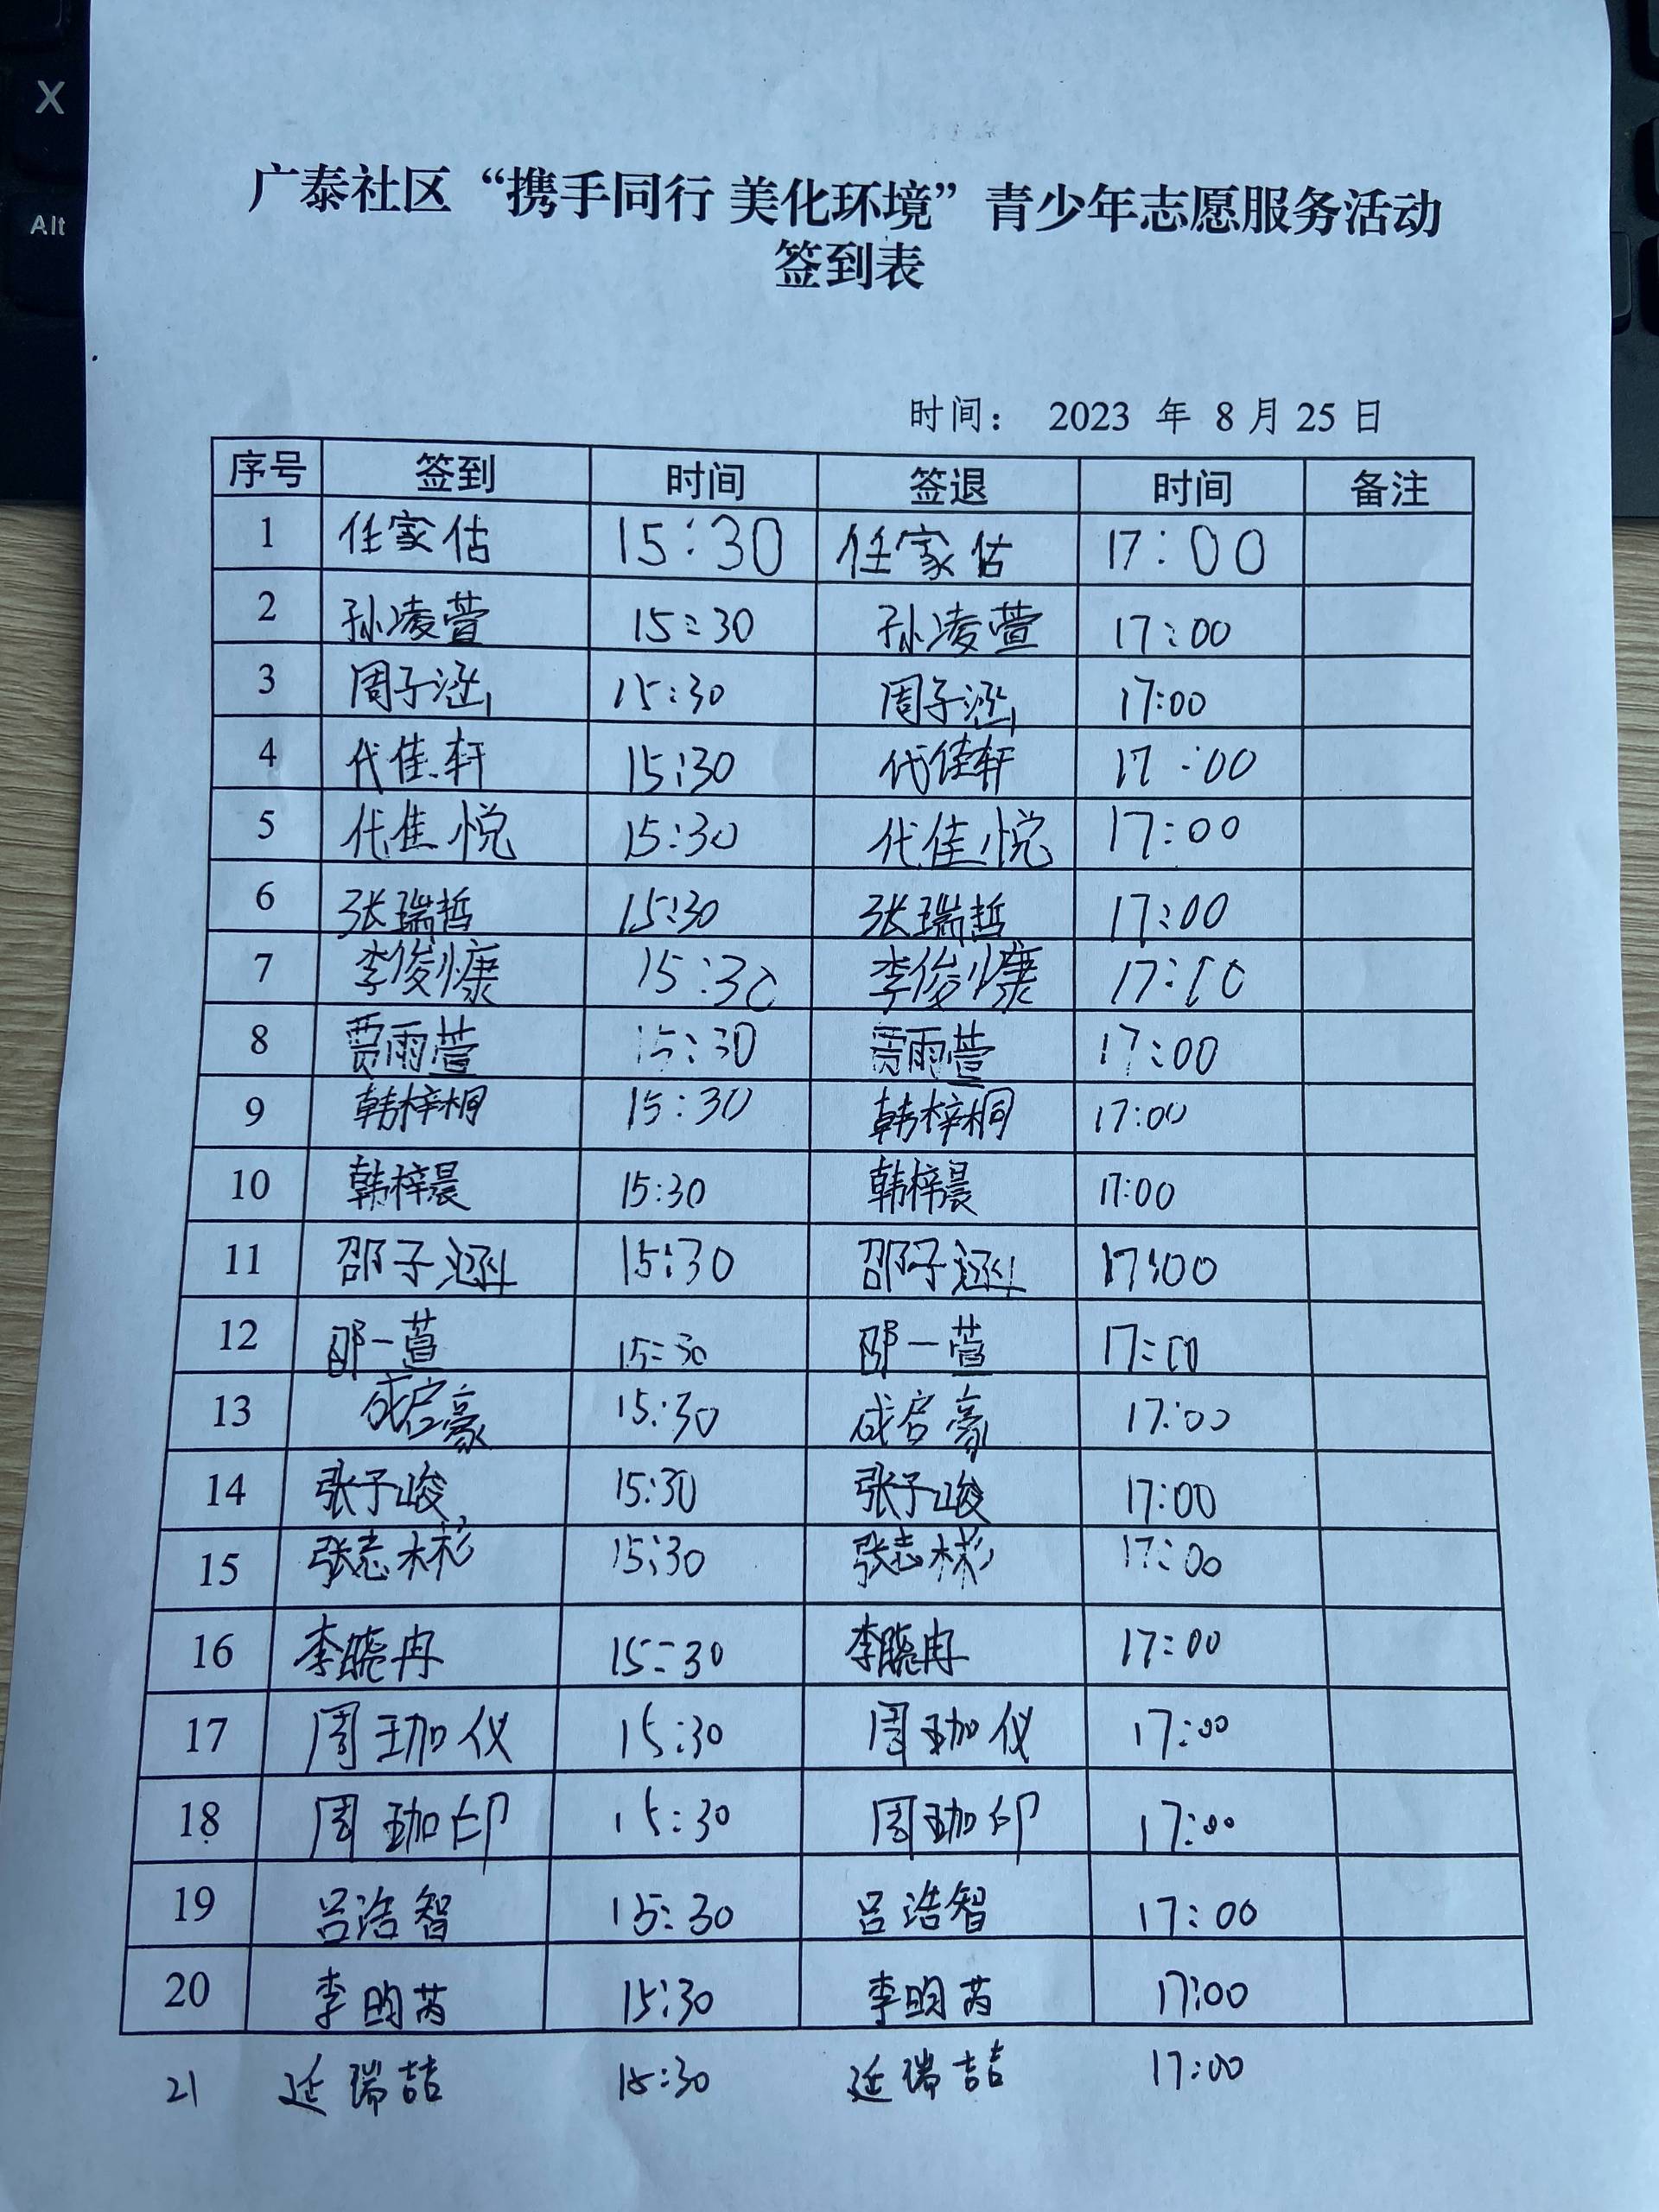 X
Alt
广泰社区“携手同行 美化环境”青少年志愿服务活动
签到表
时间： 2023 年 8 月 25 日
序号 签到 时间 签退 时间 备注
1 任家估 15:30 任家估 17:00
2 孙凌萱 15:30 孙凌萱 17:00
3 周子涵 15:30 周子涵 17:00
4 代佳轩 15:30 代佳轩 17:00
5 代佳悦 15:30 代佳悦 17:00
6 张瑞哲 15:30 张瑞哲 17:00
7 李俊慷 15:30 李俊慷 17:00
8 贾雨萱 15:30 贾雨萱 17:00
9 韩梓桐 15:30 韩梓桐 17:00
10 韩梓晨 15:30 韩梓晨 17:00
11 邵子涵 15:30 邵子涵 17:00
12 邵一萱 15:30 邵一萱 17:00
13 成启豪 15:30 成启豪 17:00
14 张子峻 15:30 张子峻 17:00
15 张志彬 15:30 张志彬 17:00
16 李晓冉 15:30 李晓冉 17:00
17 周珈仪 15:30 周珈仪 17:00
18 周珈印 15:30 周珈印 17:00
19 吕浩智 15:30 吕浩智 17:00
20 李昀芮 15:30 李昀芮 17:00
21 延瑞喆 15:30 延瑞喆 17:00